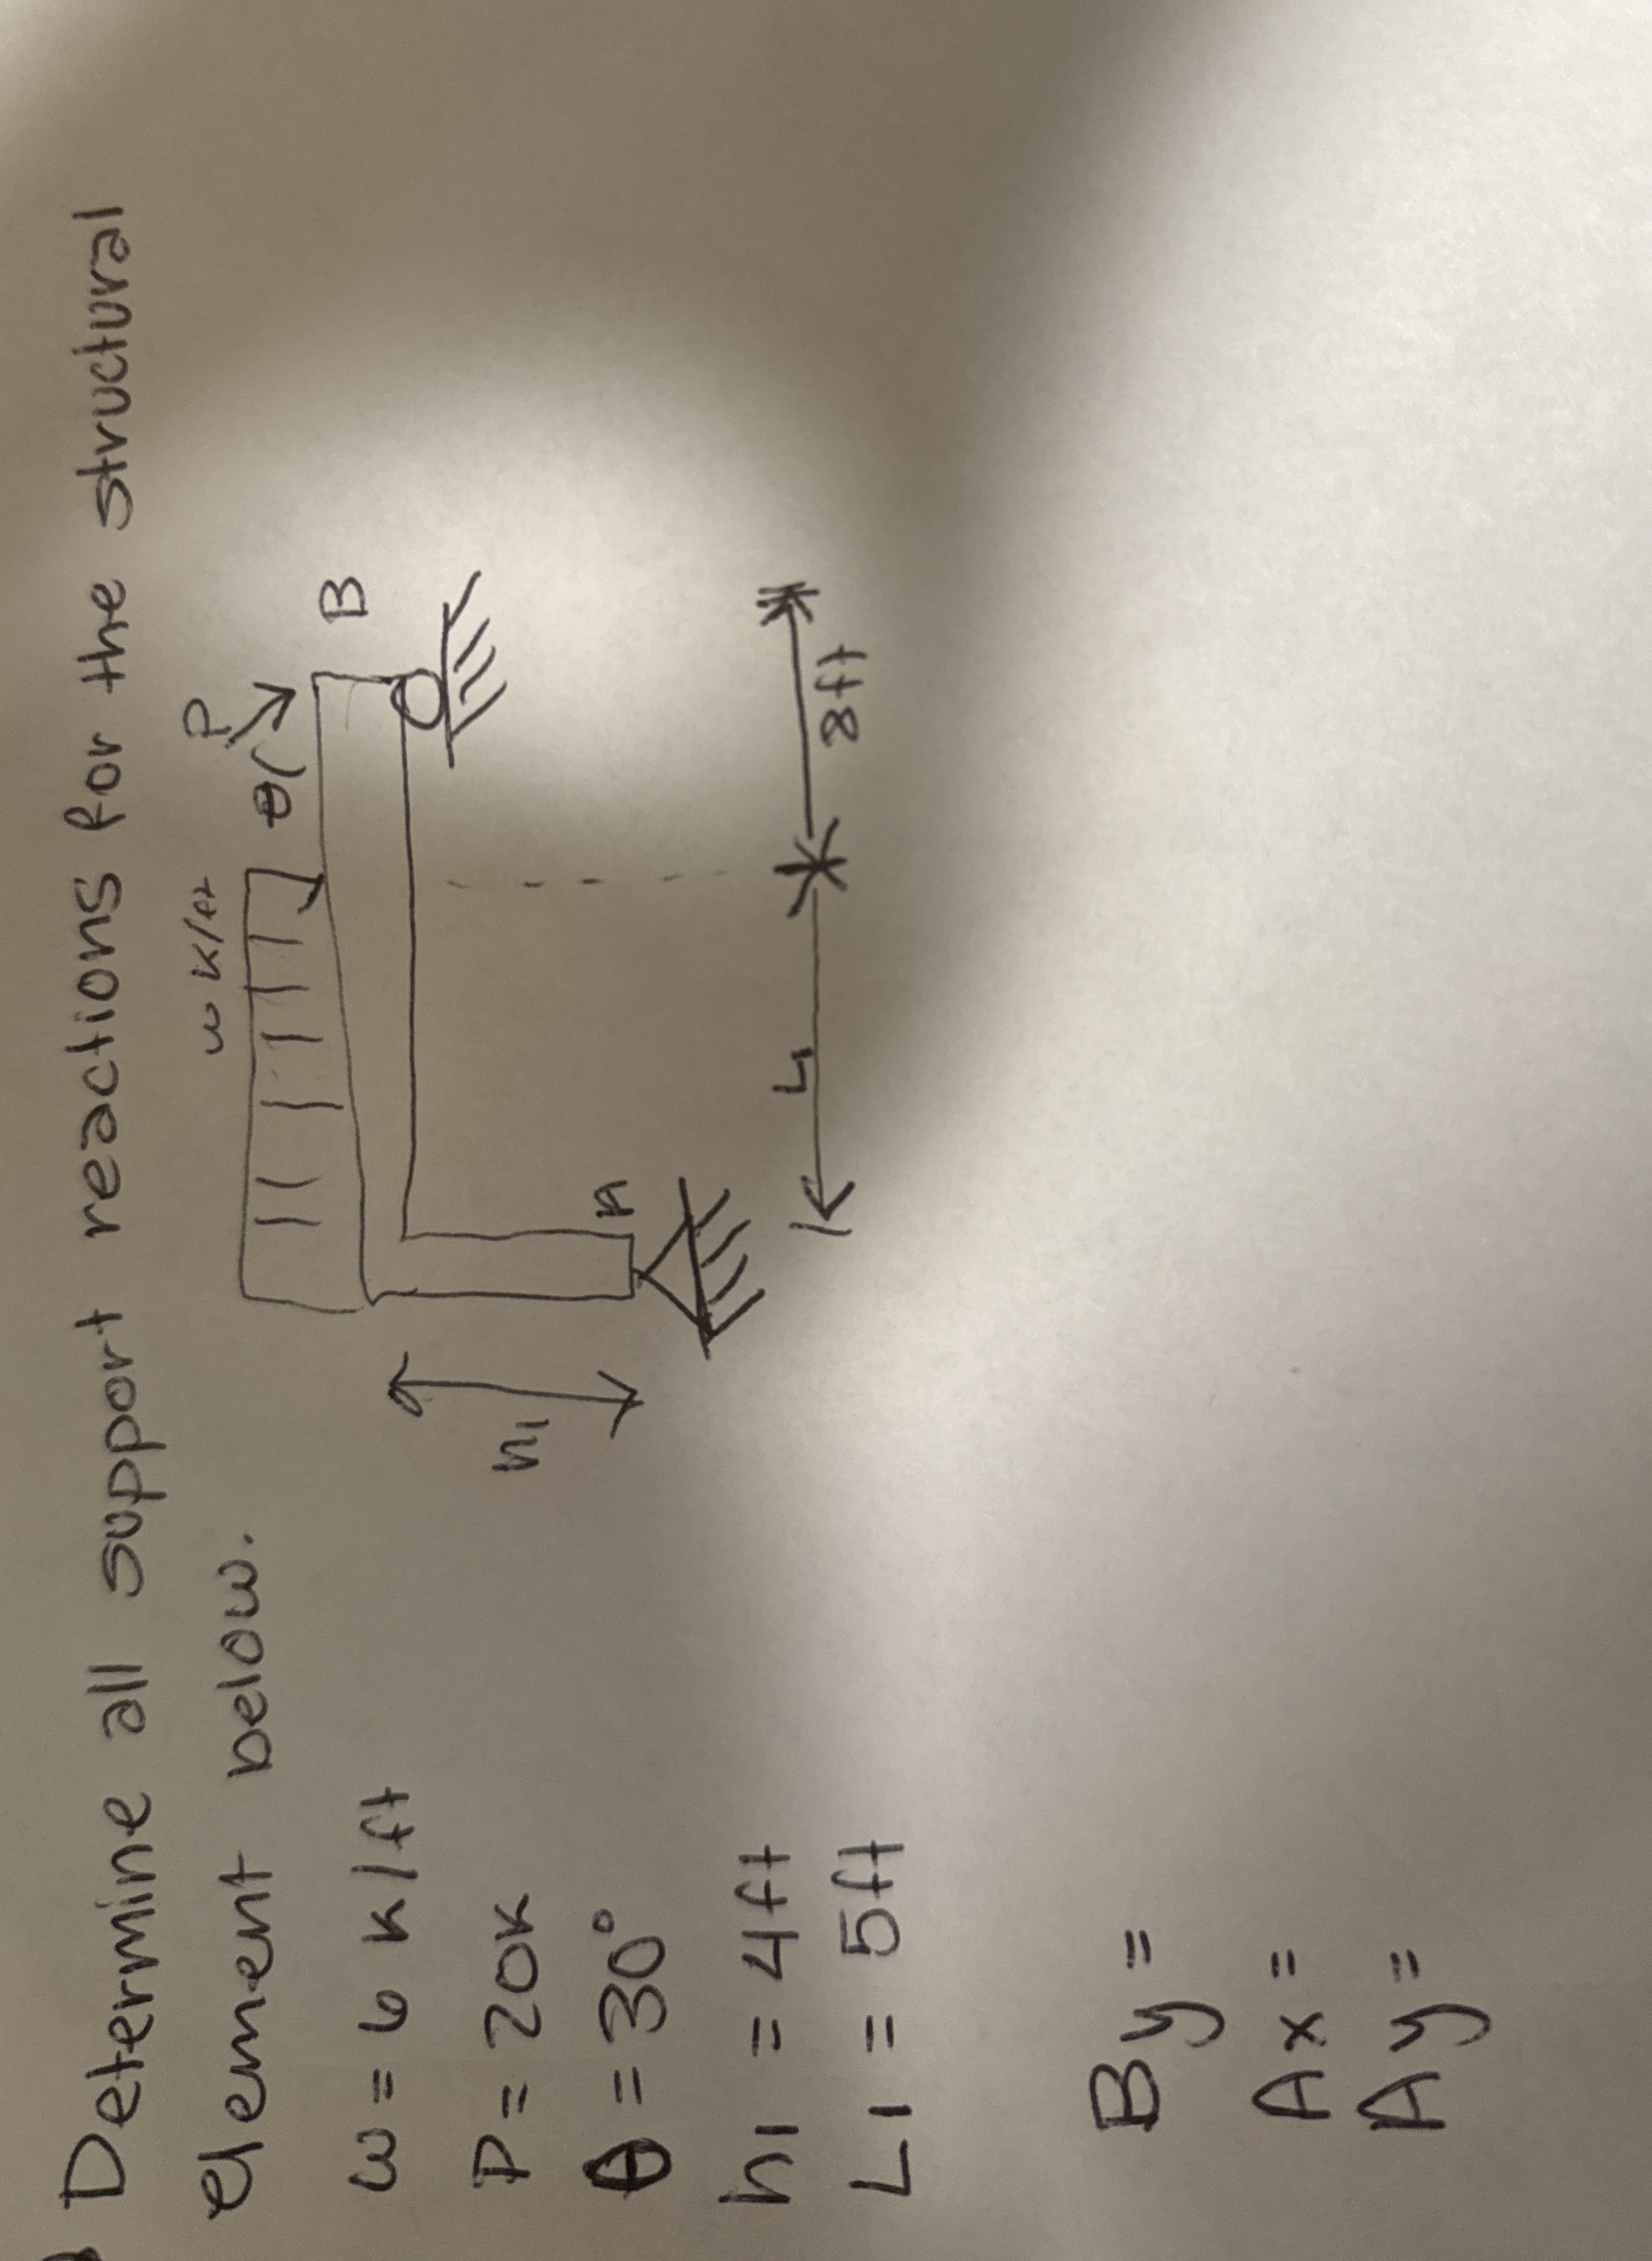 Determine all support reactions for the structural
element below.
w = 6 k/ft
P = 20k
θ = 30°
h1 = 4ft
L1 = 5ft
w k/ft
P
θ
B
h1
A
L1
8ft
By =
Ax =
Ay =